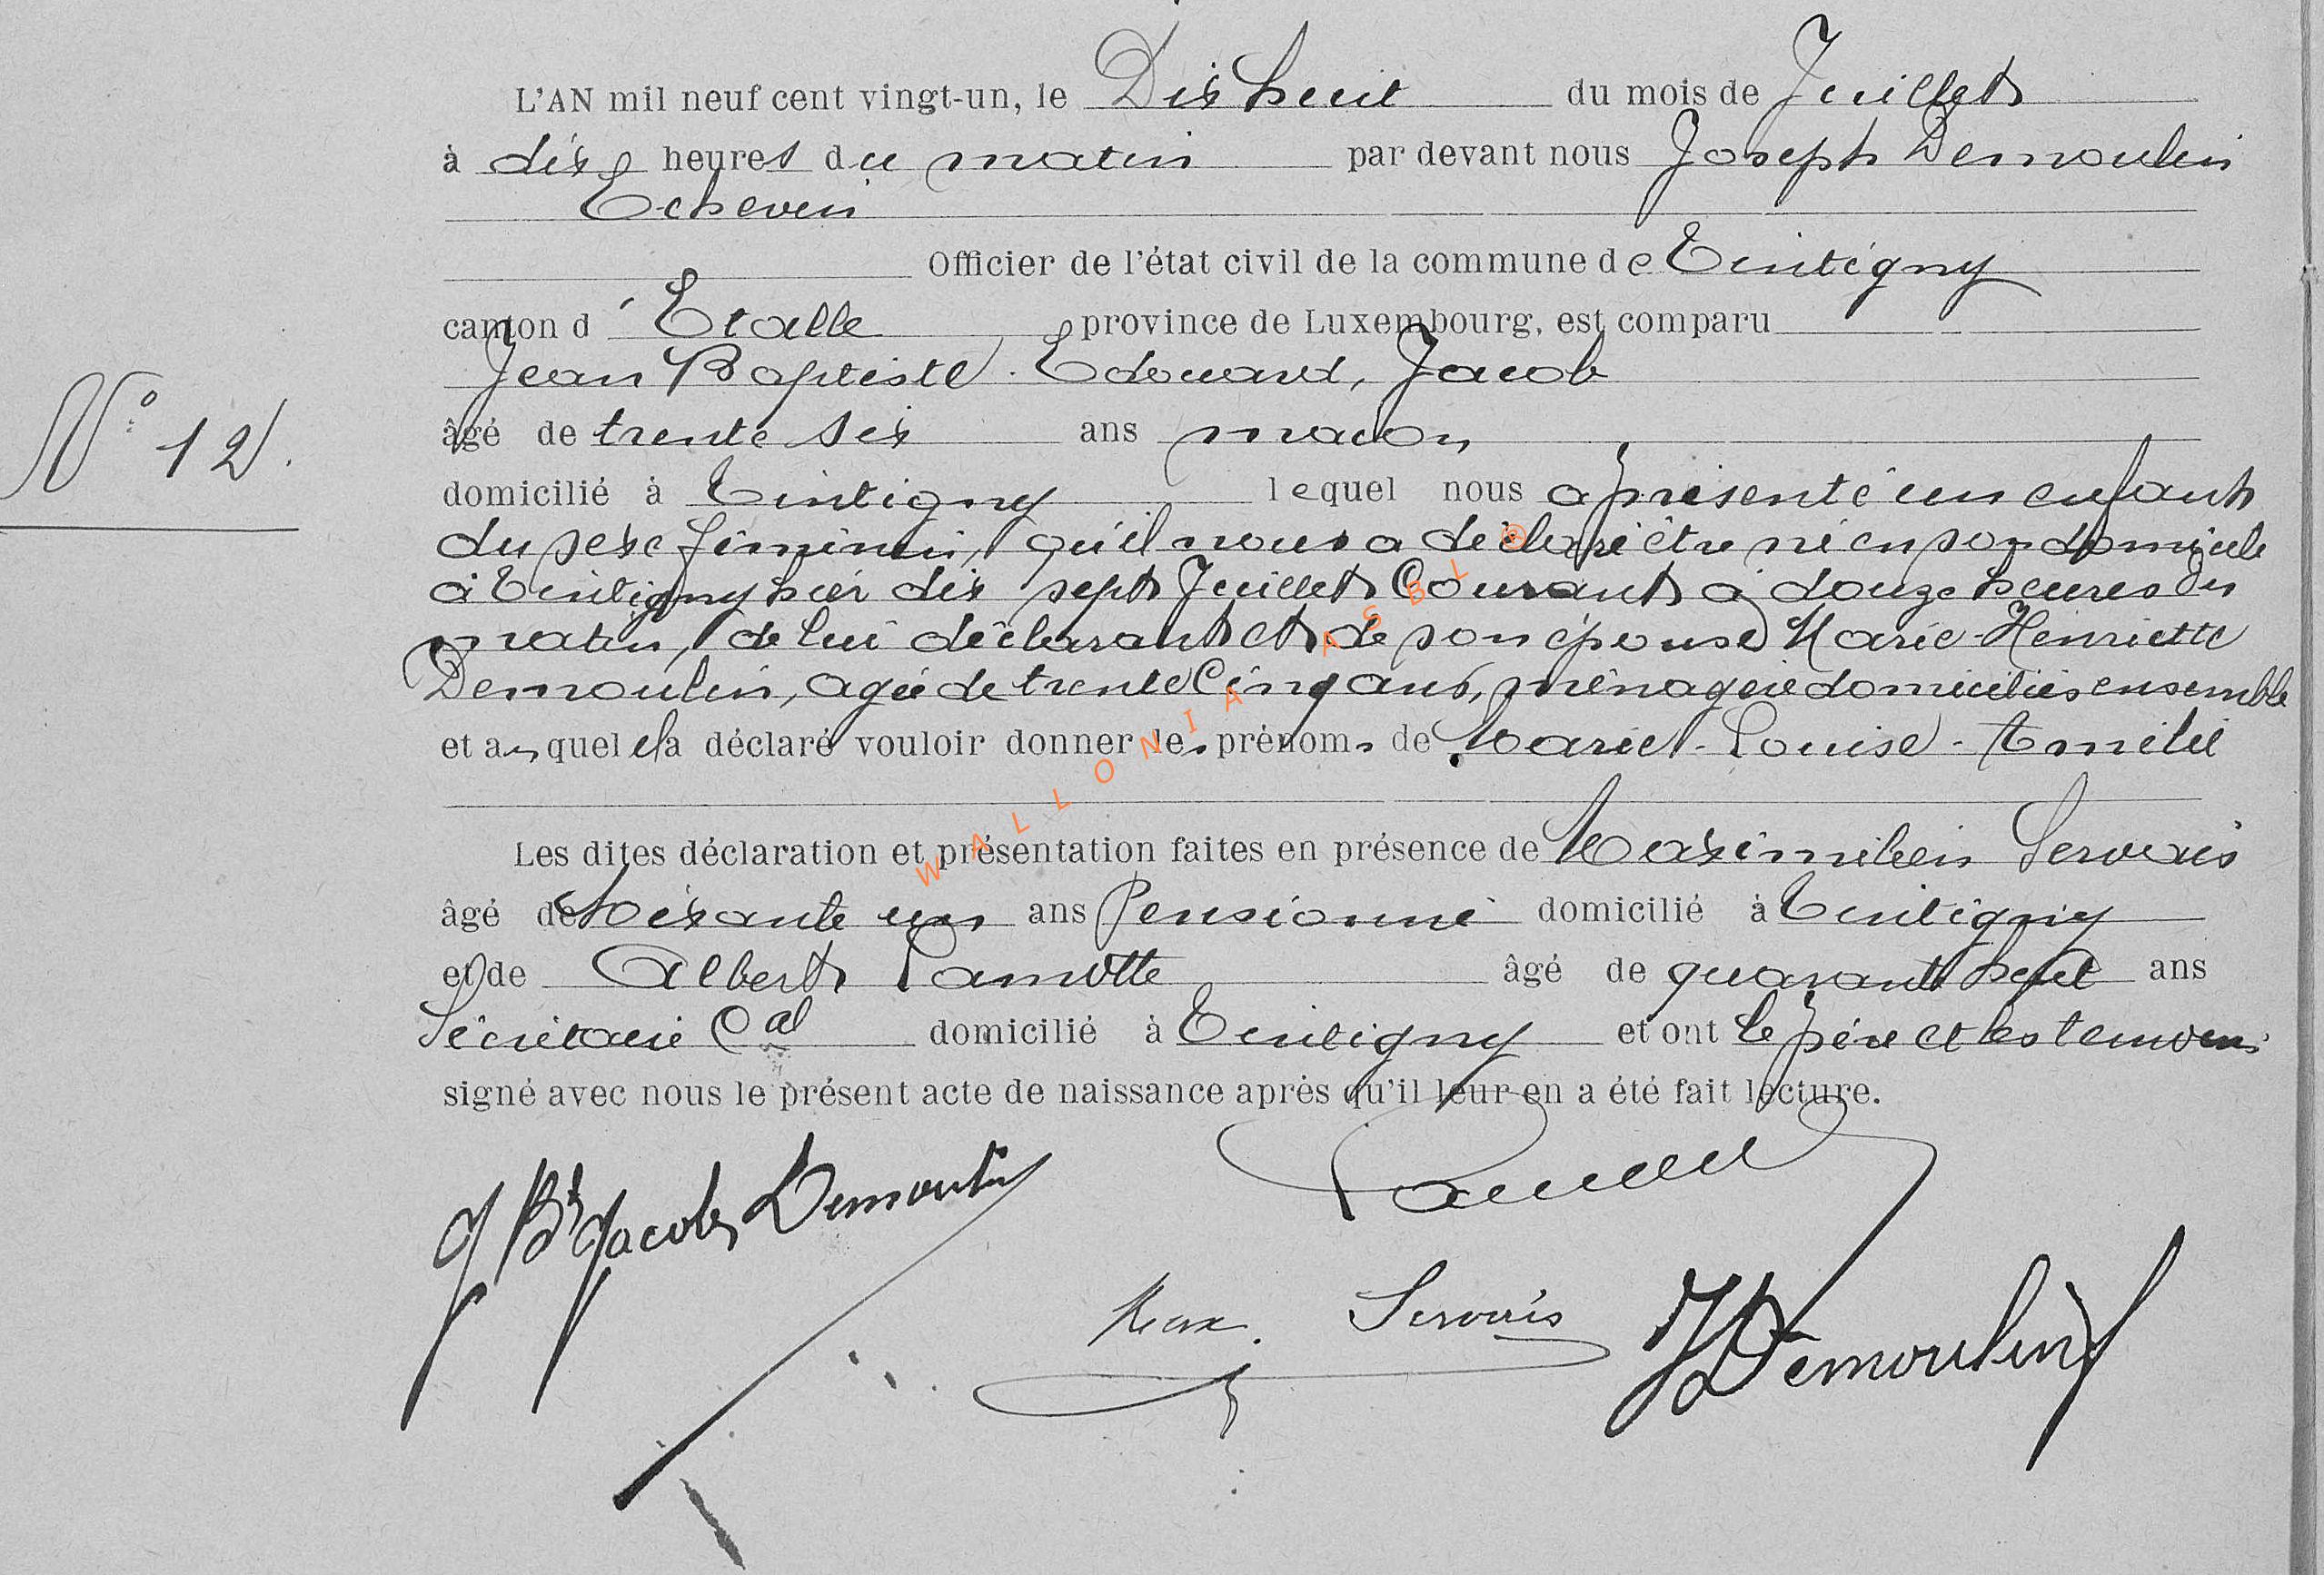 L'AN mil neuf cent vingt-un, le Dix huit du mois de Juillet
à dix heures du matin par devant nous Joseph Demoulin
Echevin
Officier de l'état civil de la commune de Tintigny
canton d'Etalle province de Luxembourg, est comparu
Jean Baptiste Edouard, Jacob
N° 12.
âgé de trente six ans maçon
domicilié à Tintigny lequel nous a présenté un enfant
du sexe féminin, qu'il nous a déclaré être né en son domicile
à Tintigny hier dix sept Juillet Courant à douze heures du
matin, de lui déclarant et de son épouse Marie-Henriette
Demoulin, agée de trente Cinq ans, ménagère domiciliés ensemble
et auquel il a déclaré vouloir donner les prénoms de Marie-Louise-Emilie
Les dites déclaration et présentation faites en présence de Maximilien Servais
âgé de Soixante un ans Pensionné domicilié à Tintigny
et de Albert Lamotte âgé de quarante ans
Secrétaire Cal domicilié à Tintigny et ont le père et les temoins
signé avec nous le présent acte de naissance après qu'il leur en a été fait lecture.
J Bte Jacob Demoulin
Max. Servais
J Demoulin
WALLONIA ASBL ®